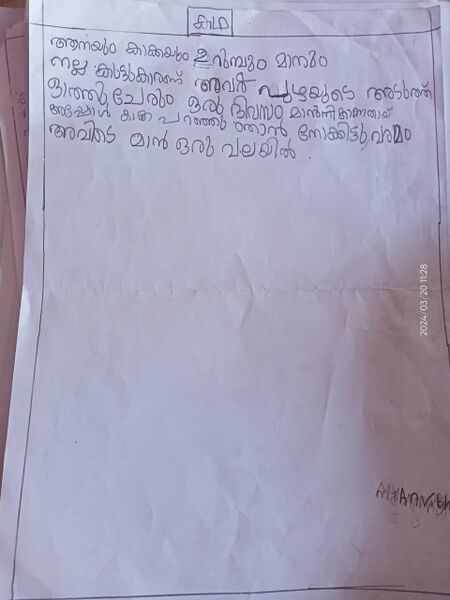 കഥ
ആനയും കാക്കയും ഉറുമ്പും മാനും
നല്ല കൂട്ടുകാരാണ് അവർ പുഴയുടെ അടുത്ത്
ഒത്തുചേരും ഒരു ദിവസം മാൻനെകാണാതായ്
അപ്പോൾ കാക്ക പറഞ്ഞു ഞാൻ നോക്കിട്ടു വരമം
അവിടെ മാൻ ഒരു വലയിൽ .
2024/03/20 11:28